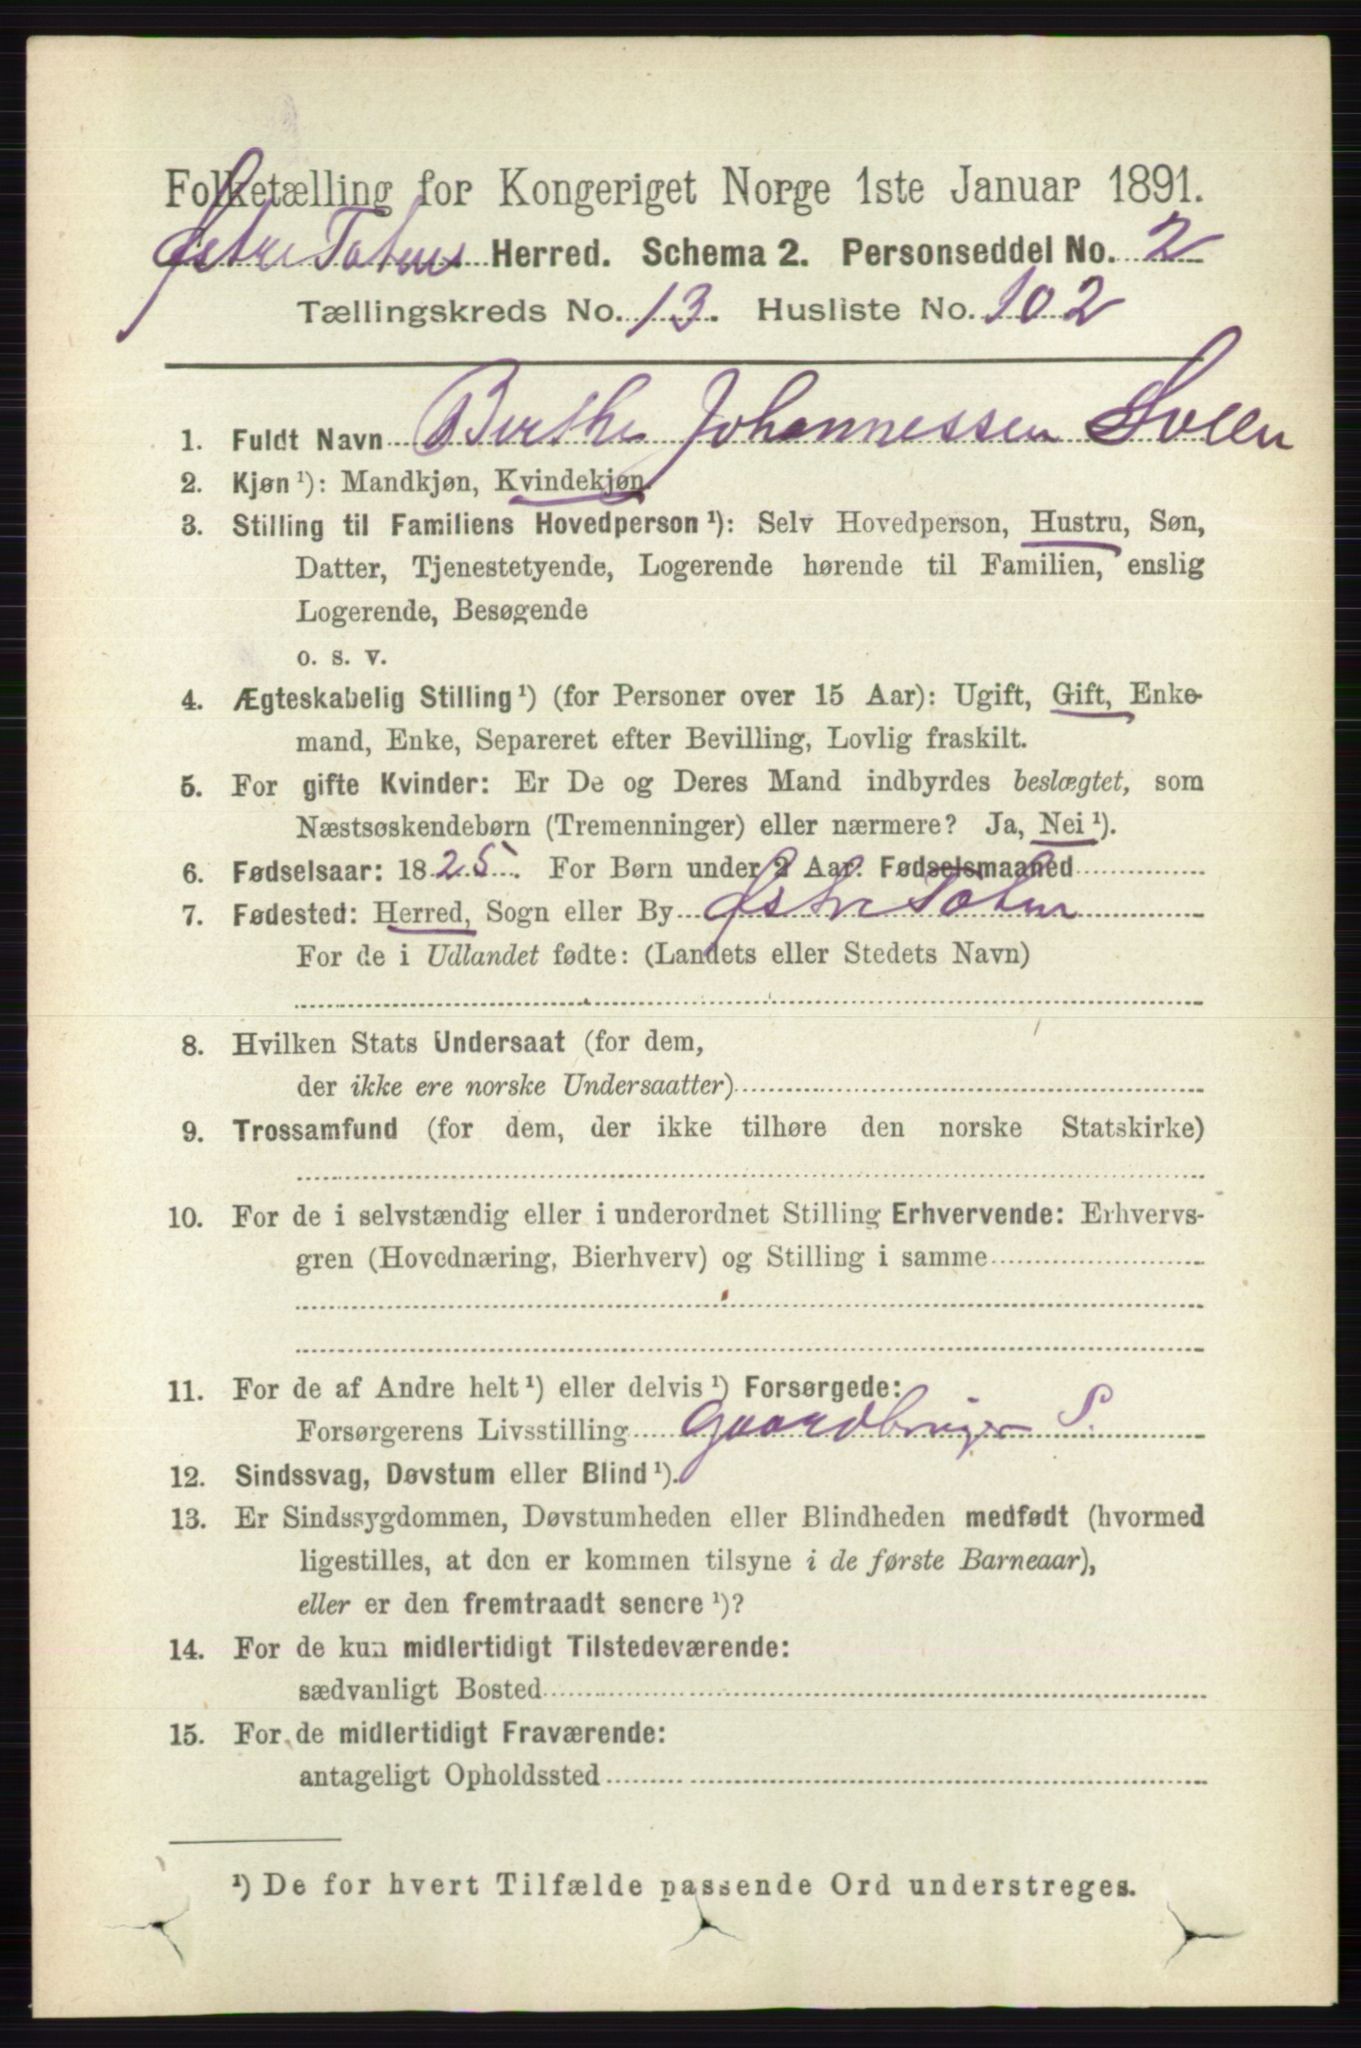 Folketælling for Kongeriget Norge 1ste Januar 1891.
Østre Toten Herred. Schema 2. Personseddel No. 2
Tællingskreds No. 13. Husliste No. 102
1. Fuldt Navn Berthe Johannessen Sveen
2. Kjøn ¹): Mandkjøn, Kvindekjøn.
3. Stilling til Familiens Hovedperson ¹): Selv Hovedperson, Hustru, Søn,
Datter, Tjenestetyende, Logerende hørende til Familien, enslig
Logerende, Besøgende
o. s. v.
4. Ægteskabelig Stilling ¹) (for Personer over 15 Aar): Ugift, Gift, Enke-
mand, Enke, Separeret efter Bevilling, Lovlig fraskilt.
5. For gifte Kvinder: Er De og Deres Mand indbyrdes beslægtet, som
Næstsøskendebørn (Tremenninger) eller nærmere? Ja, Nei ¹).
6. Fødselsaar: 1825. For Børn under 2 Aar: Fødselsmaaned
7. Fødested: Herred, Sogn eller By Østre Toten
For de i Udlandet fødte: (Landets eller Stedets Navn)
8. Hvilken Stats Undersaat (for dem,
der ikke ere norske Undersaatter)
9. Trossamfund (for dem, der ikke tilhøre den norske Statskirke)
10. For de i selvstændig eller i underordnet Stilling Erhvervende: Erhvervs-
gren (Hovednæring, Bierhverv) og Stilling i samme
11. For de af Andre helt ¹) eller delvis ¹) Forsørgede:
Forsørgerens Livsstilling Gaardbruger S.
12. Sindssvag, Døvstum eller Blind ¹).
13. Er Sindssygdommen, Døvstumheden eller Blindheden medfødt (hvormed
ligestilles, at den er kommen tilsyne i de første Barneaar),
eller er den fremtraadt senere ¹)?
14. For de kun midlertidigt Tilstedeværende:
sædvanligt Bosted
15. For de midlertidigt Fraværende:
antageligt Opholdssted
¹) De for hvert Tilfælde passende Ord understreges.